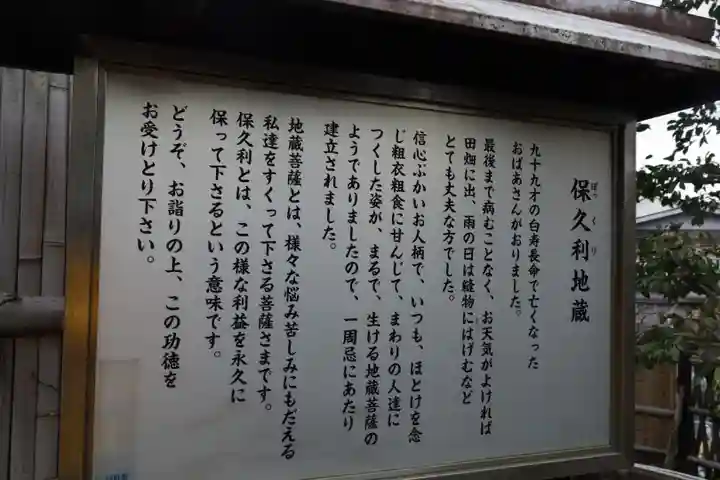 保久利地蔵
ぽっくり
九十九才の白寿長命で亡くなった
おばあさんがおりました。
最後まで病むことなく、お天気がよければ
田畑に出、雨の日は縫物にはげむなど
とても丈夫な方でした。
信心ぶかいお人柄で、いつも、ほとけを念
じ粗衣粗食に甘んじて、まわりの人達に
つくした姿が、まるで、生ける地蔵菩薩の
ようでありましたので、一周忌にあたり
建立されました。
地蔵菩薩とは、様々な悩み苦しみにもだえる
私達をすくって下さる菩薩さまです。
保久利とは、この様な利益を永久に
保って下さるという意味です。
どうぞ、お詣りの上、この功徳を
お受けとり下さい。